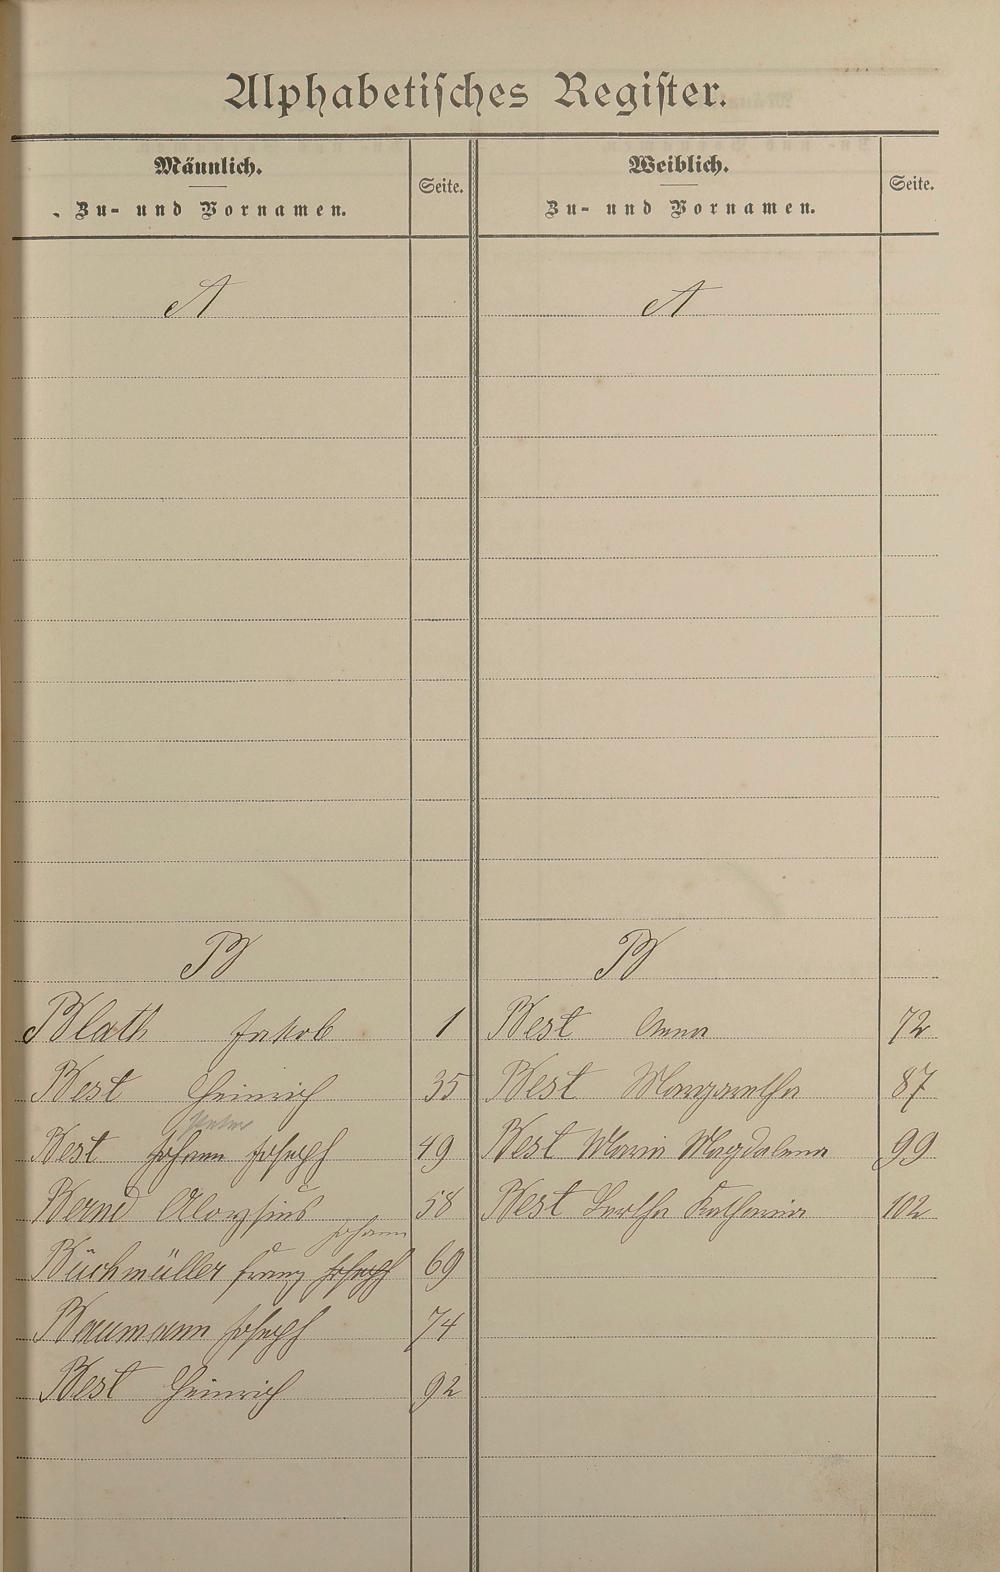 Alphabetisches Register.
Männlich. Seite. Weiblich. Seite.
Zu- und Vornamen. Zu- und Vornamen.
A A
B B
Blath Jakob 1 Best Anna 72
Best Heinrich 35 Best Margaretha 87
Best Johann Joseph 49 Best Maria Magdalena 99
Bernd Aloysius 58 Best Bertha Katharina 102
Johann
Büchmüller Franz Joseph 69
Baumann Joseph 74
Best Heinrich 92